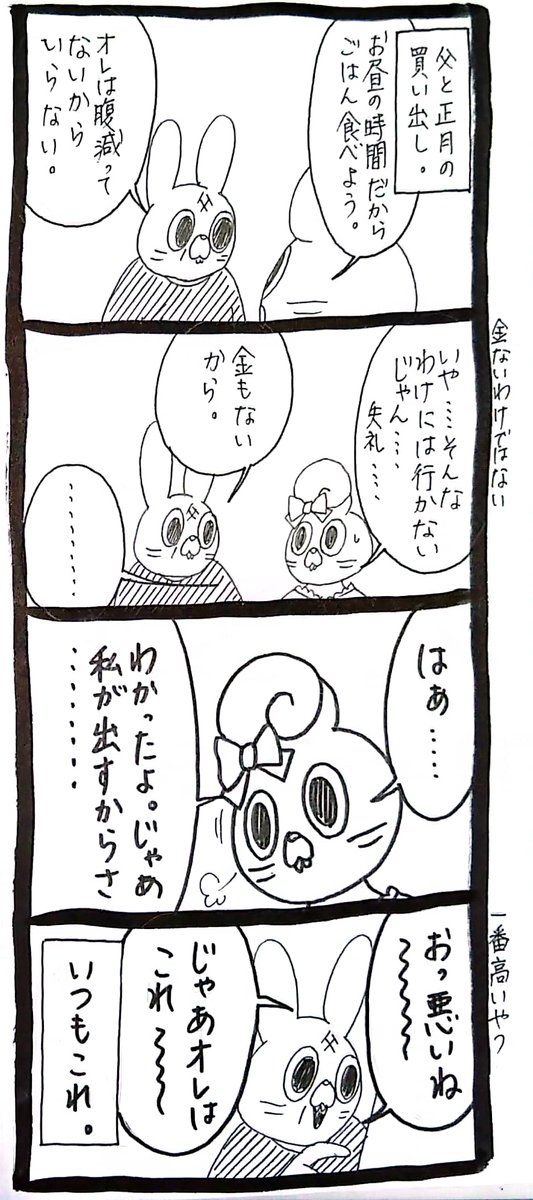 父と正月の
買い出し。
お昼の時間だから
ごはん食べよう。
オレは腹減って
ないから
いらない。
金ないわけではない
いや……そんな
わけには行かない
じゃん……
失礼……
金もない
から。
…………
はぁ……
わかったよ。じゃあ
私が出すからさ
…………
一番高いやつ
おっ悪いね
〜〜〜
じゃあオレは
これ〜〜〜
いつもこれ。